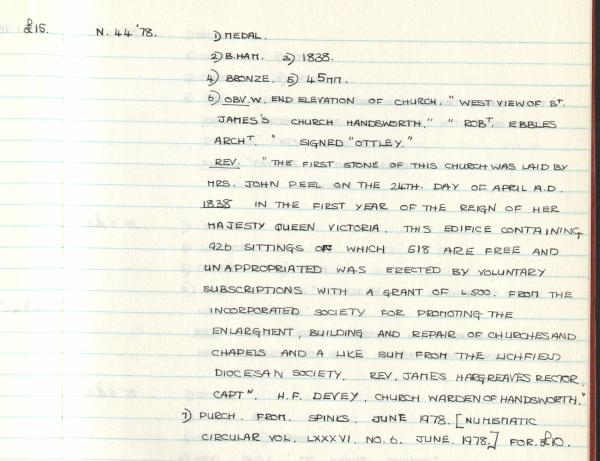 £15. N. 44 '78. 1) MEDAL.
2) B.HAM. 3) 1838.
4) BRONZE. 5) 45mm.
6) OBV. W. END ELEVATION OF CHURCH. "WEST VIEW OF ST.
JAMES'S CHURCH HANDSWORTH." "ROBT. EBBLES
ARCHT." SIGNED "OTTLEY."
REV. "THE FIRST STONE OF THIS CHURCH WAS LAID BY
MRS. JOHN PEEL ON THE 24TH. DAY OF APRIL A.D.
1838 IN THE FIRST YEAR OF THE REIGN OF HER
MAJESTY QUEEN VICTORIA. THIS EDIFICE CONTAINING
926 SITTINGS OF WHICH 518 ARE FREE AND
UNAPPROPRIATED WAS ERECTED BY VOLUNTARY
SUBSCRIPTIONS WITH A GRANT OF L.500. FROM THE
INCORPORATED SOCIETY FOR PROMOTING THE
ENLARGMENT, BUILDING AND REPAIR OF CHURCHES AND
CHAPELS AND A LIKE SUM FROM THE LICHFIELD
DIOCESAN SOCIETY. REV. JAMES HARGREAVES RECTOR.
CAPTN. H.F. DEVEY, CHURCH WARDEN OF HANDSWORTH."
7) PURCH. FROM. SPINKS. JUNE 1978. [NUMISMATIC
CIRCULAR VOL. LXXXVI. NO. 6. JUNE. 1978.] FOR. £10.